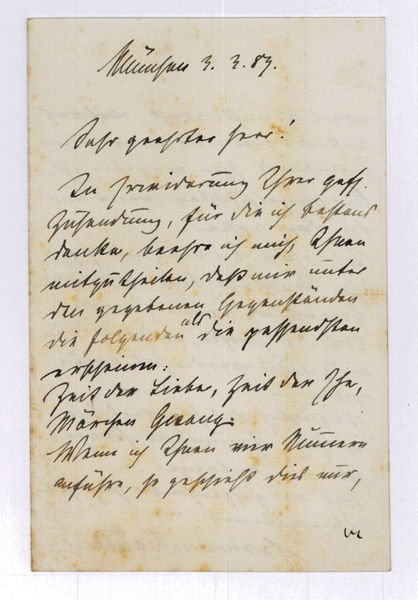 München 3. 7. 89.
Sehr geehrter Herr!
In Erwiderung Ihrer gefl.
Zusendung, für die ich bestens
danke, beehre ich mich, Ihnen
mitzutheilen, daß mir unter
den gegebenen Gegenständen
die folgenden als die passendsten
erscheinen:
Zeit der Liebe, Zeit der Ehe,
Märchen Gesang.
Wenn ich Ihnen vier Nummern
anführe, so geschieht dies nur,